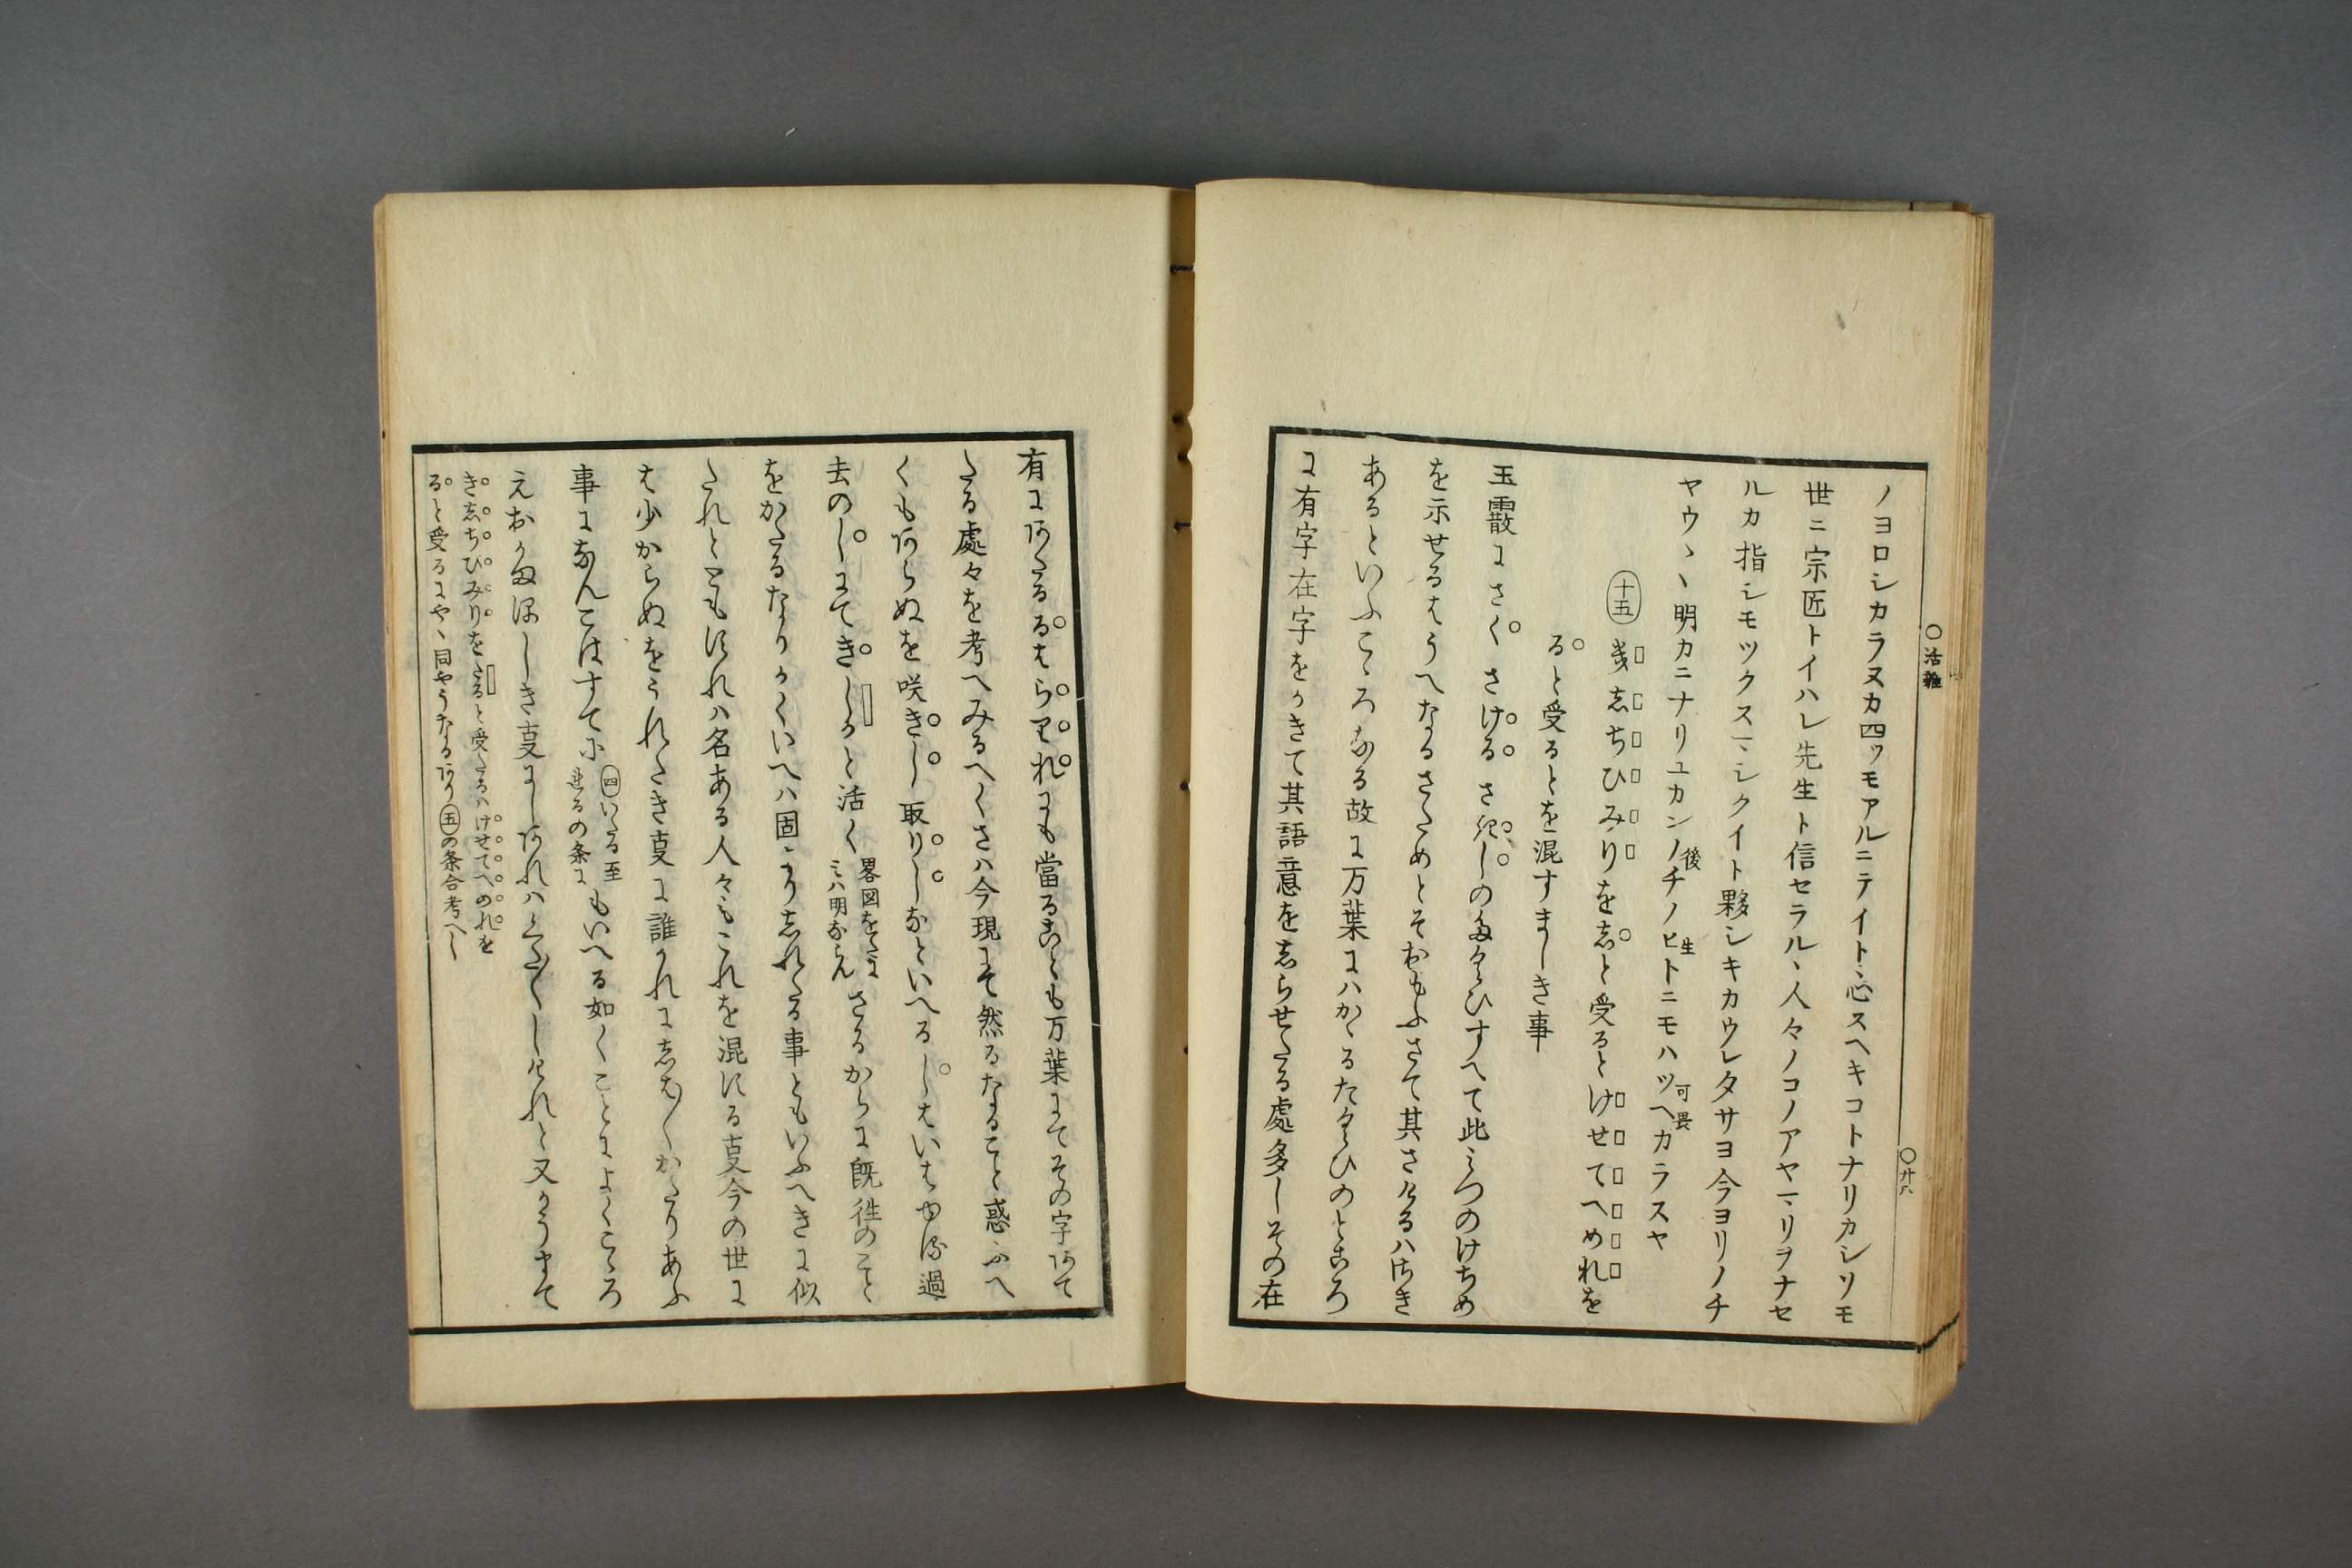 ○活雑
○廿八
ノヨロシカラヌカ四ツモアルニテイト心スヘキコトナリカシソモ
世ニ宗匠トイハレ先生ト信セラルヽ人々ノコノアヤマリヲナセ
ルカ指シモツクスマシクイト夥シキカウレタサヨ今ヨリノチ
ヤウヽヽ明カニナリユカンノチノヒトニモハツヘカラスヤ
後 生 可畏
十五 きしちひみりをしと受るとけせてへめれを
ると受るとを混すましき事
玉霰にさく さける さきしのたくひすへて此三つのけちめ
を示せるはうへなるさためとそおもふさて其さけるハさき
あるといふこゝろなる故に万葉にハかゝるたくひのところ
に有字在字をかきて其語意をしらせたる處多しその在
有にあたるるはらりれにも當ることも万葉にてその字あて
たる處々を考へみるへくさハ今現にて然るなること惑ふへ
くもあらぬを咲きし取りしなといへるしはいはゆる過
去のしにてきししかと活く
畧図をたに
ミハ明ならん
さるからに既往のこと
をかたるなりかくいへハ固よりしれたる事ともいふへきに似
たれとともすれハ名ある人々もこれを混する事今の世に
は少からぬをうれたき事に誰かれにしはゝかたりあふ
事になんこはすてに
四いたる至
遅るの条に
もいへる如くことによくこゝろ
えおかまほしき事にしあれハくたゝしけれと又かうまて
きしちひみりをたると受たるハけせてへめれを
ると受るにやゝ同やうなるあり五の条合考へし